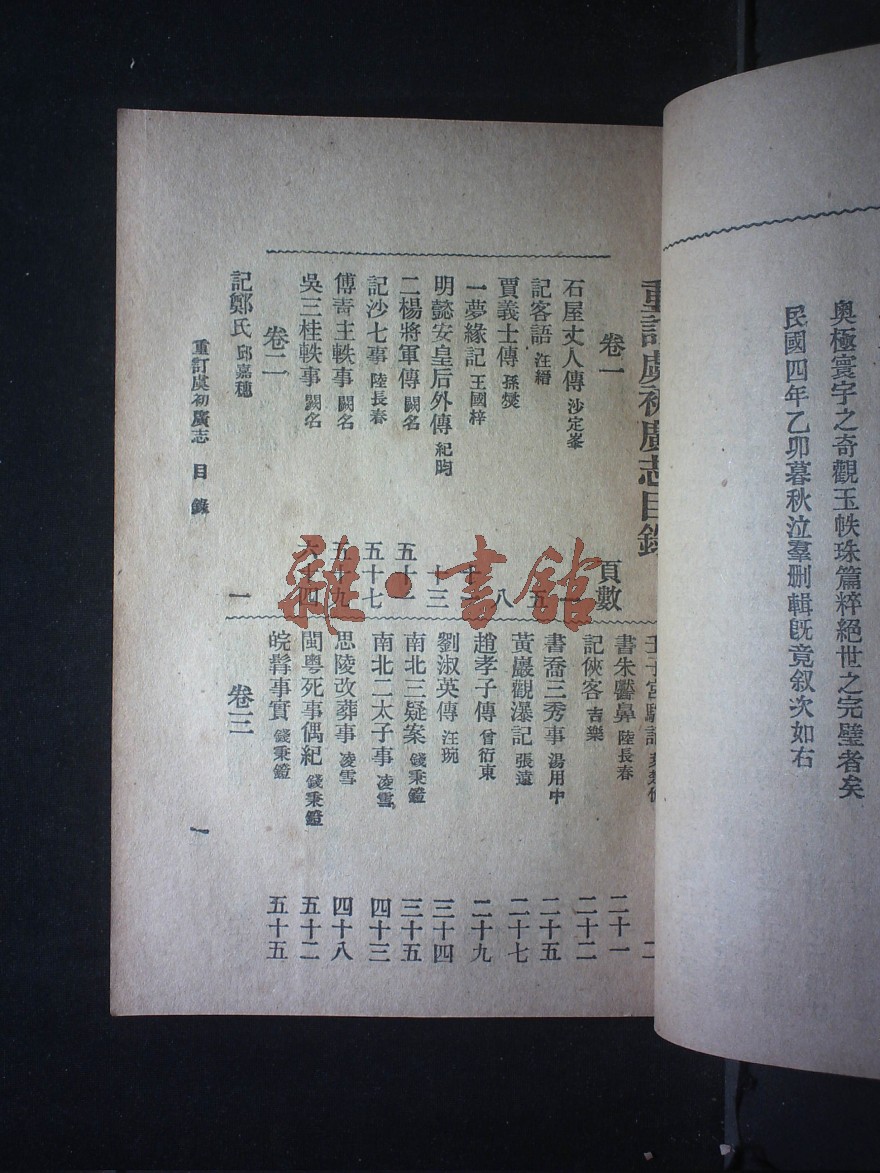 奧極寰宇之奇觀玉帙珠篇粹絕世之完璧者矣
民國四年乙卯暮秋泣羣刪輯既竟叙次如右
重訂虞初廣志目錄
卷一 頁數
石屋丈人傳 沙定峯 一
記客語 汪縉 五
賈義士傳 孫爕 八
一夢緣記 王國梓
明懿安皇后外傳 紀昀 十三
二楊將軍傳 闕名 五十一
記沙七事 陸長春 五十七
傅青主軼事 闕名 五十九
吳三桂軼事 闕名 六十四
卷二
記鄭氏 邱嘉穗 一
書朱毉鼻 陸長春 二十一
記俠客 吉樂 二十二
書喬三秀事 湯用中 二十五
黃巖觀瀑記 張遠 二十七
趙孝子傳 曾衍東 二十九
劉淑英傳 汪琬 三十四
南北三疑案 錢秉鐙 三十五
南北二太子事 凌雪 四十三
思陵改葬事 凌雪 四十八
閩粵死事偶紀 錢秉鐙 五十二
皖髯事實 錢秉鐙 五十五
卷三
重訂虞初廣志 目錄 一
雜·書館